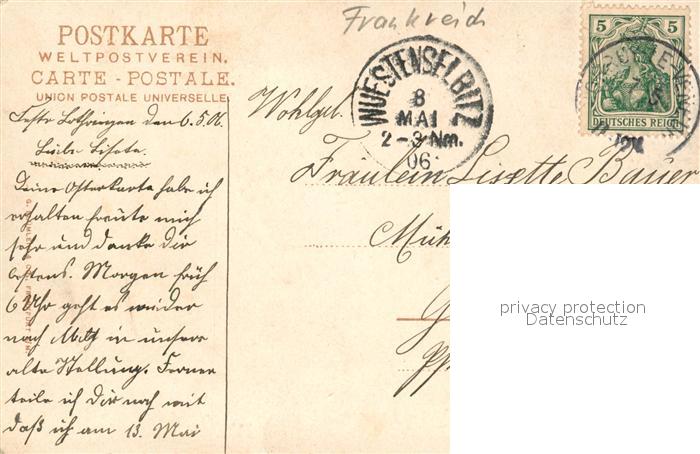 Frankreich
POSTKARTE
WELTPOSTVEREIN.
CARTE - POSTALE.
UNION POSTALE UNIVERSELLE.
Feste Lothringen den 6.5.06.
Liebe Lisete.
Deine Osterkarte habe ich
erhalten freute mich
sehr und danke dir
bestens. Morgen früh
6 Uhr geht es wieder
nach Metz in unsere
alte Stellung. Ferner
teile ich dir noch mit
daß ich am 13. Mai
WUESTENSELBITZ
8
MAI
2-3 Nm.
06
5 5
DEUTSCHES REICH
Wohlgeb.
Fräulein Lisette Bauer
Müh
G
privacy protection
Datenschutz